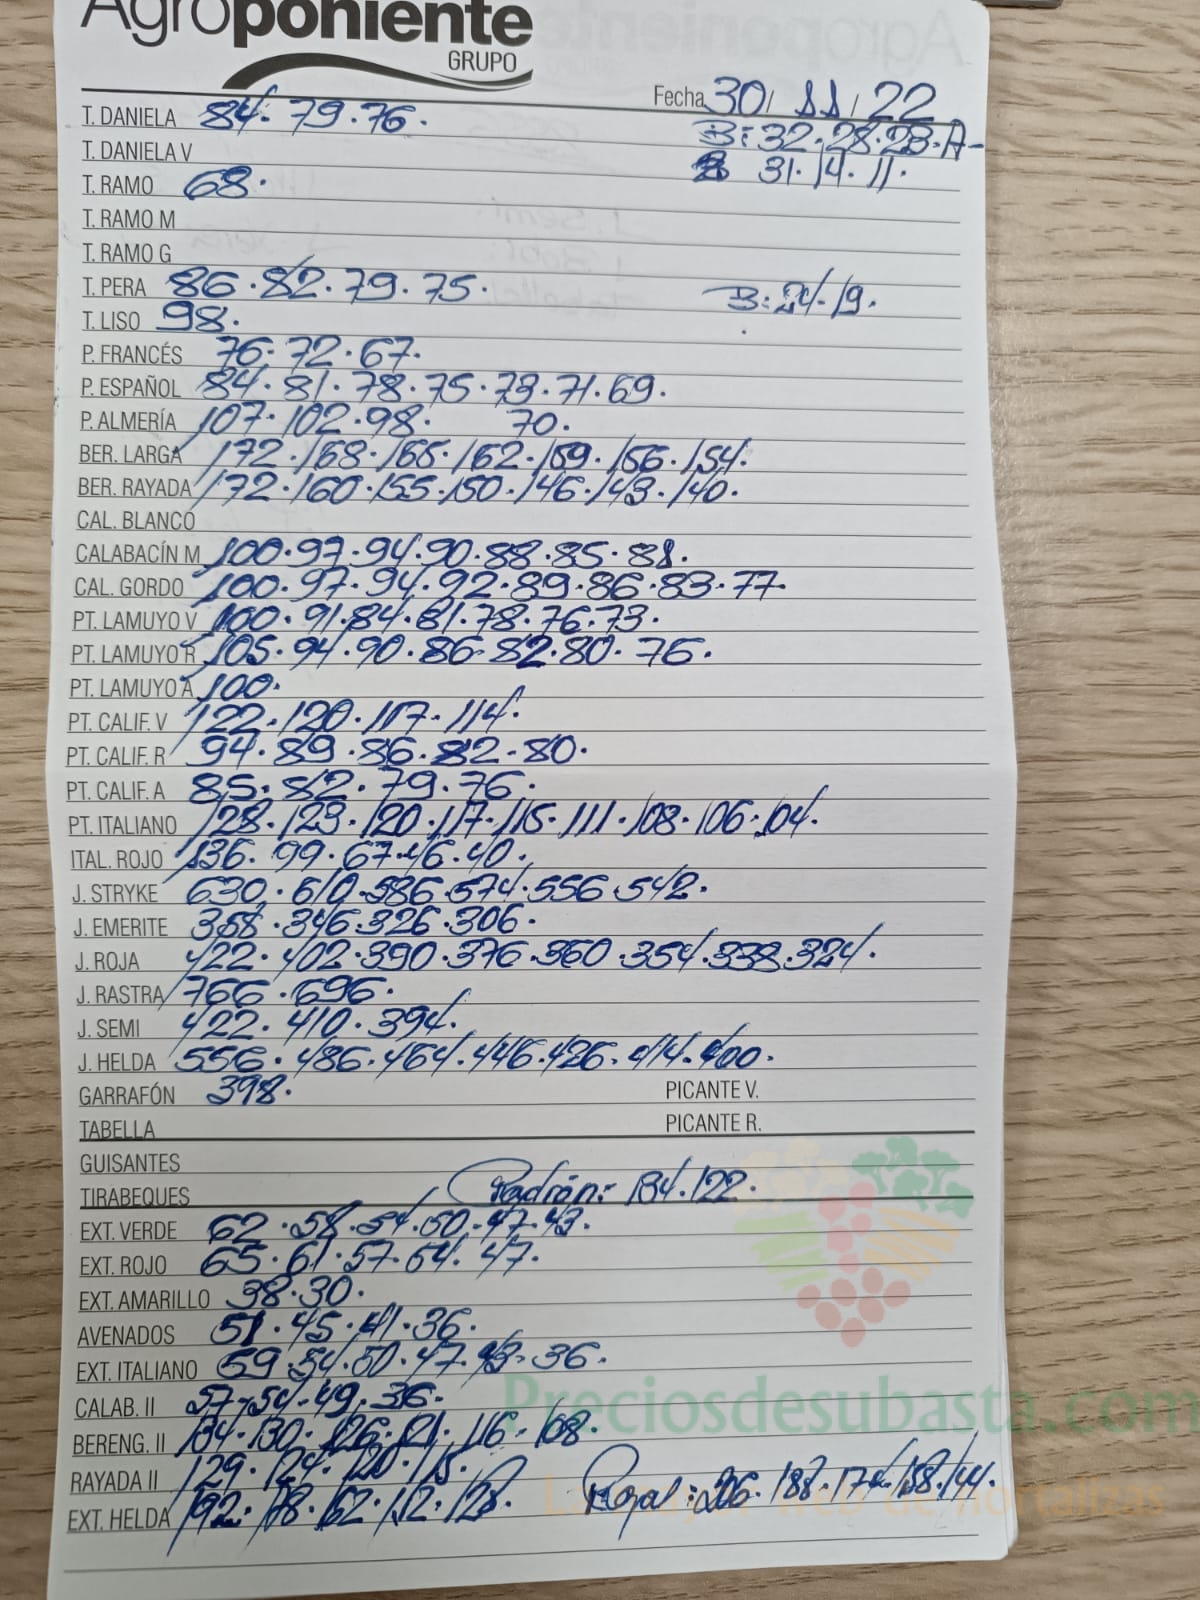 Agroponiente
GRUPO
Fecha 30/ 11/ 22
T. DANIELA 84. 79. 76. B: 32. 28. 23. A-
T. DANIELA V 31. 14. 11.
T. RAMO 68.
T. RAMO M
T. RAMO G
T. PERA 86. 82. 79. 75. B: 24. 19.
T. LISO 98.
P. FRANCÉS 76. 72. 67.
P. ESPAÑOL 84. 81. 78. 75. 73. 71. 69.
P. ALMERÍA 107. 102. 98. 70.
BER. LARGA 172. 168. 165. 162. 159. 156. 154.
BER. RAYADA 172. 160. 155. 150. 146. 143. 140.
CAL. BLANCO
CALABACÍN M 100. 97. 94. 90. 88. 85. 81.
CAL. GORDO 100. 97. 94. 92. 89. 86. 83. 77.
PT. LAMUYO V 100. 91. 84. 81. 78. 76. 73.
PT. LAMUYO R 105. 94. 90. 86. 82. 80. 76.
PT. LAMUYO A 100.
PT. CALIF. V 122. 120. 117. 114.
PT. CALIF. R 94. 89. 86. 82. 80.
PT. CALIF. A 85. 82. 79. 76.
PT. ITALIANO 128. 123. 120. 117. 115. 111. 108. 106. 104.
ITAL. ROJO 136. 99. 67. 46. 40.
J. STRYKE 630. 610. 586. 574. 556. 542.
J. EMERITE 358. 346. 326. 306.
J. ROJA 422. 402. 390. 376. 360. 354. 338. 324.
J. RASTRA 766. 696.
J. SEMI 422. 410. 394.
J. HELDA 556. 486. 464. 446. 426. 414. 400.
GARRAFÓN 398. PICANTE V.
TABELLA PICANTE R.
GUISANTES
TIRABEQUES Padrón: 134. 122.
EXT. VERDE 62. 58. 54. 50. 47. 43.
EXT. ROJO 65. 61. 57. 54. 47.
EXT. AMARILLO 38. 30.
AVENADOS 51. 45. 41. 36.
EXT. ITALIANO 59. 54. 50. 47. 43. 36.
CALAB. II 57. 54. 49. 36.
Preciosdesubasta.com
BERENG. II 134. 130. 126. 121. 116. 108.
RAYADA II 129. 124. 120. 115.
EXT. HELDA 192. 178. 162. 128. Royal: 206. 188. 174. 158. 144.